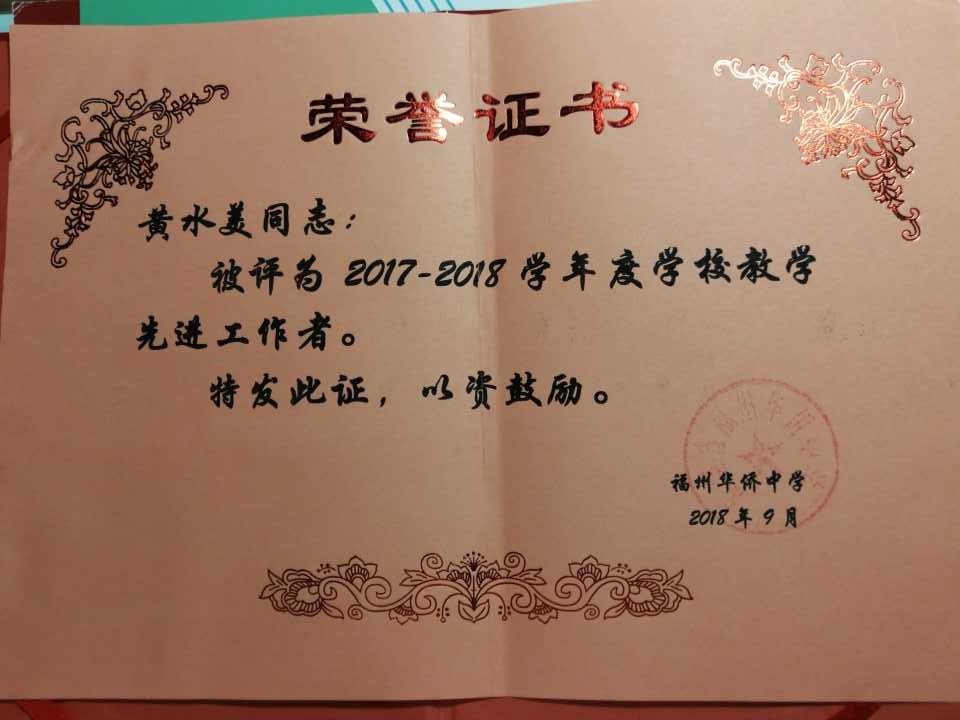 荣誉证书
黄水美同志：
被评为 2017-2018 学年度学校教学
先进工作者。
特发此证，以资鼓励。
福州华侨中学
2018 年 9 月